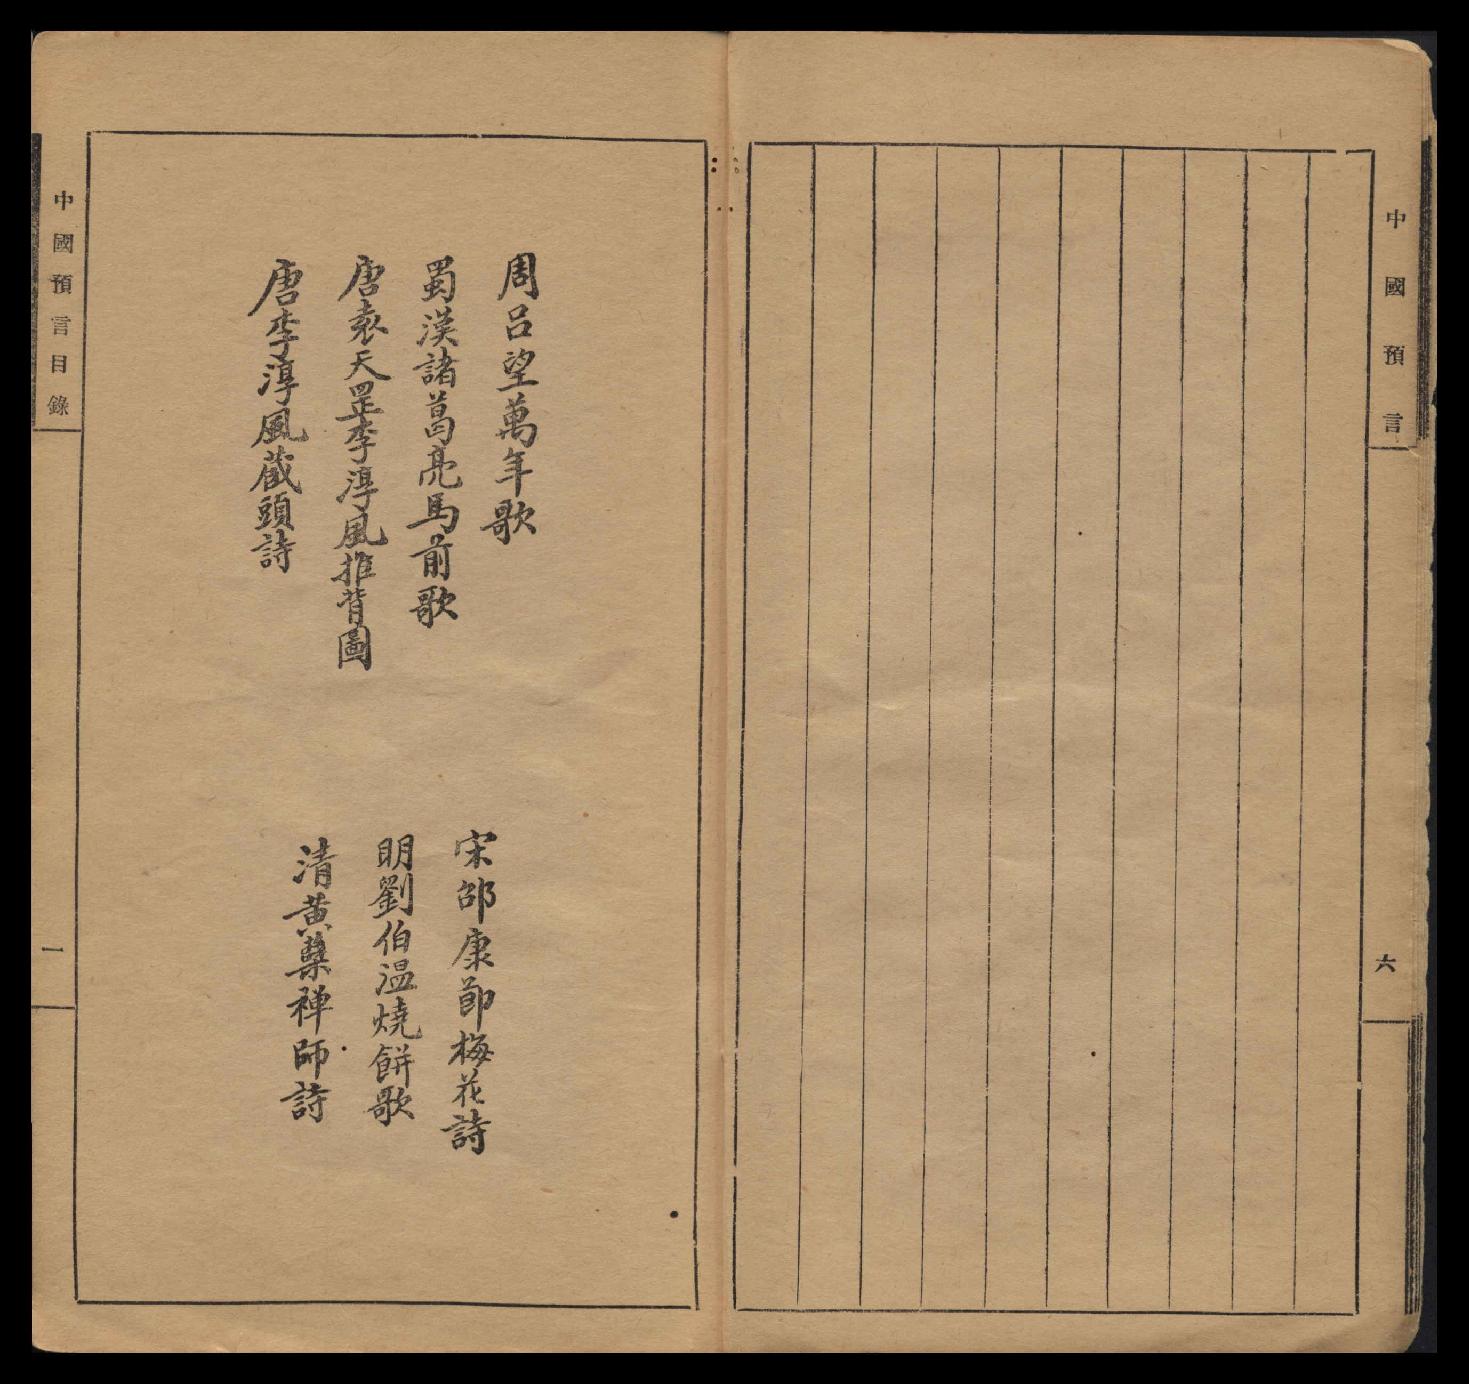 中國預言
六
周吕望萬年歌
蜀漢諸葛亮馬前歌
唐袁天罡李淳風推背圖
唐李淳風藏頭詩
宋邵康節梅花詩
明劉伯温燒餅歌
清黃蘗禅師詩
中國預言目錄
一